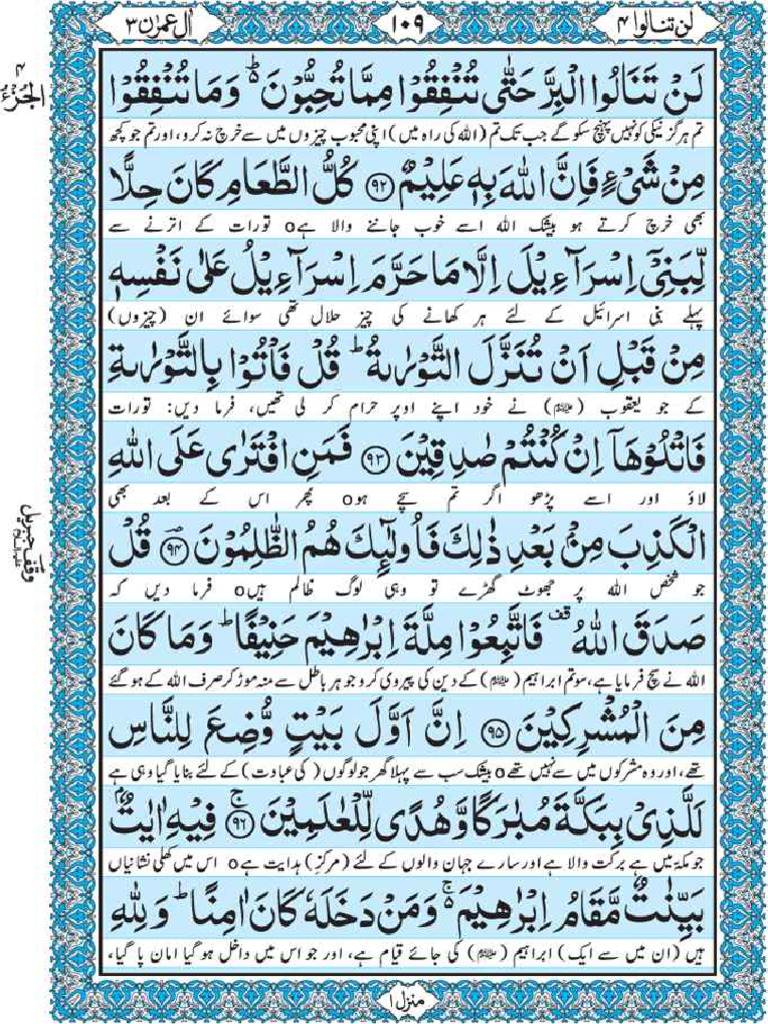 لن تنالوا ۴
۱۰۹
اٰل عمرٰن ۳
الجزء ۴
لَنْ تَنَالُوا الْبِرَّ حَتّٰى تُنْفِقُوْا مِمَّا تُحِبُّوْنَ ؕ۬ وَ مَا تُنْفِقُوْا
تم ہرگز نیکی کو نہیں پہنچ سکو گے جب تک تم (اللہ کی راہ میں) اپنی محبوب چیزوں میں سے خرچ نہ کرو، اور تم جو کچھ
مِنْ شَیْءٍ فَاِنَّ اللّٰهَ بِهٖ عَلِیْمٌ ﴿۹۲﴾ كُلُّ الطَّعَامِ كَانَ حِلًّا
بھی خرچ کرتے ہو بیشک اللہ اسے خوب جاننے والا ہے o تورات کے اترنے سے
لِّبَنِیْۤ اِسْرَآءِیْلَ اِلَّا مَا حَرَّمَ اِسْرَآءِیْلُ عَلٰى نَفْسِهٖ
پہلے بنی اسرائیل کے لئے ہر کھانے کی چیز حلال تھی سوائے ان (چیزوں)
مِنْ قَبْلِ اَنْ تُنَزَّلَ التَّوْرٰىةُ ؕ قُلْ فَاْتُوْا بِالتَّوْرٰىةِ
کے جو یعقوب (علیہ السلام) نے خود اپنے اوپر حرام کر لی تھیں، فرما دیں: تورات
فَاتْلُوْهَاۤ اِنْ كُنْتُمْ صٰدِقِیْنَ ﴿۹۳﴾ فَمَنِ افْتَرٰى عَلَى اللّٰهِ
لاؤ اور اسے پڑھو اگر تم سچے ہو o پھر اس کے بعد بھی
الْكَذِبَ مِنْۢ بَعْدِ ذٰلِكَ فَاُولٰٓىِٕكَ هُمُ الظّٰلِمُوْنَ ﴿۹۴﴾ؔ قُلْ
وقف جبریل علیہ السلام
جو شخص اللہ پر جھوٹ گھڑے تو وہی لوگ ظالم ہیں o فرما دیں کہ
صَدَقَ اللّٰهُ ۫ فَاتَّبِعُوْا مِلَّةَ اِبْرٰهِیْمَ حَنِیْفًا ؕ وَ مَا كَانَ
اللہ نے سچ فرمایا ہے، سو تم ابراہیم (علیہ السلام) کے دین کی پیروی کرو جو ہر باطل سے منہ موڑ کر صرف اللہ کے ہو گئے
مِنَ الْمُشْرِكِیْنَ ﴿۹۵﴾ اِنَّ اَوَّلَ بَیْتٍ وُّضِعَ لِلنَّاسِ
تھے، اور وہ مشرکوں میں سے نہیں تھے o بیشک سب سے پہلا گھر جو لوگوں (کی عبادت) کے لئے بنایا گیا وہی ہے
لَلَّذِیْ بِبَكَّةَ مُبٰرَكًا وَّ هُدًى لِّلْعٰلَمِیْنَ ﴿۹۶﴾ۚ فِیْهِ اٰیٰتٌۢ
جو مکہ میں ہے برکت والا ہے اور سارے جہان والوں کے لئے (مرکزِ) ہدایت ہے o اس میں کھلی نشانیاں
بَیِّنٰتٌ مَّقَامُ اِبْرٰهِیْمَ ۚ۬ وَ مَنْ دَخَلَهٗ كَانَ اٰمِنًا ؕ وَ لِلّٰهِ
ہیں (ان میں سے ایک) ابراہیم (علیہ السلام) کی جائے قیام ہے، اور جو اس میں داخل ہو گیا امان پا گیا،
منزل ۱